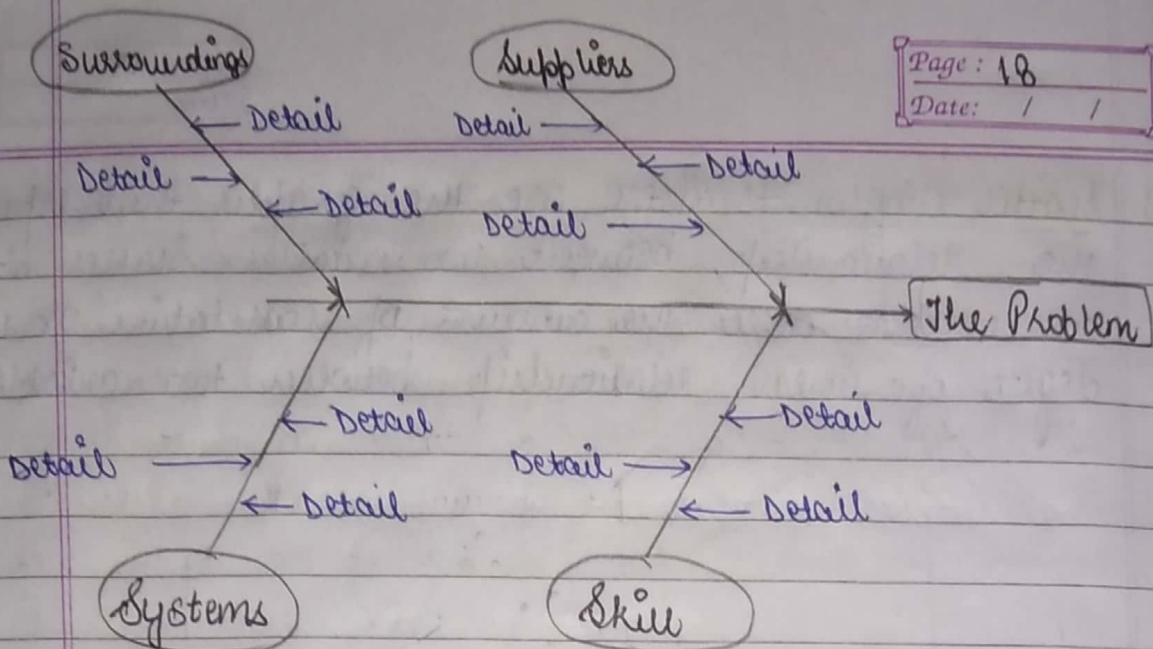 Surroundings
Suppliers
Page: 18
Date: / /
Detail
Detail
Detail
Detail
Detail
Detail
The Problem
Detail
Detail
Detail
Detail
Detail
Detail
Systems
Skill